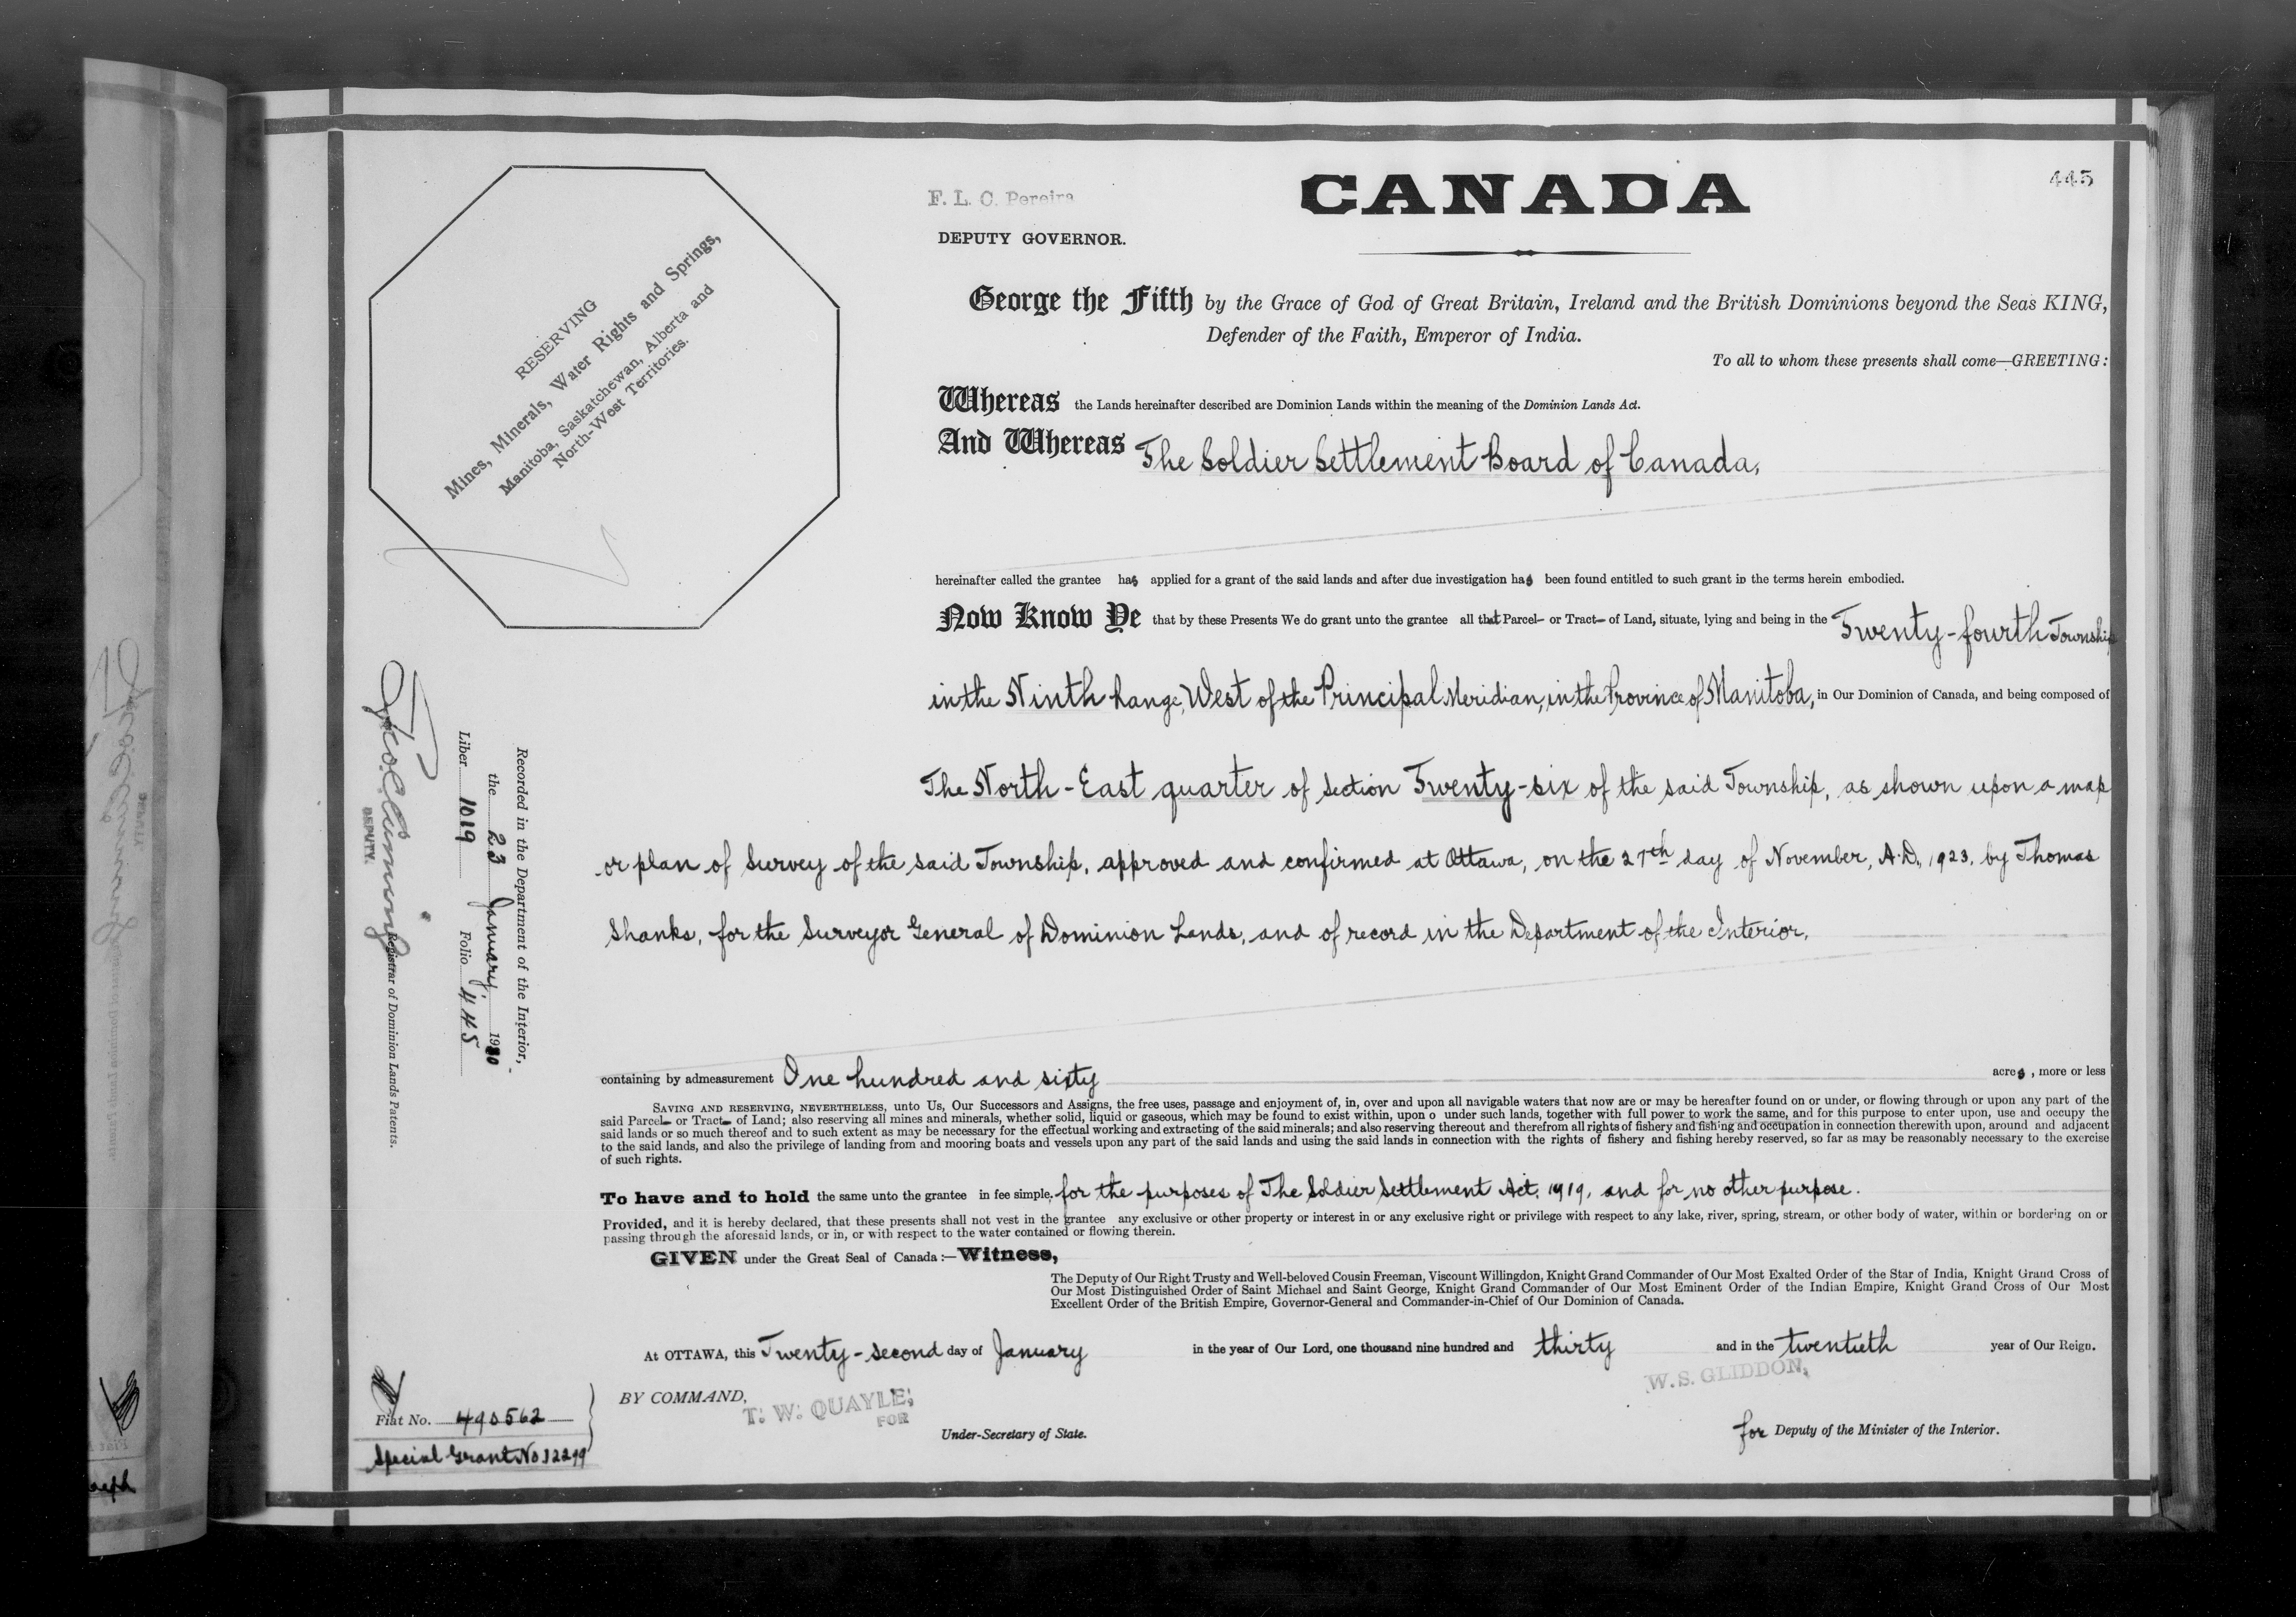 445
F. L. C. Pereira
CANADA
DEPUTY GOVERNOR.
RESERVING
Mines, Minerals, Water Rights and Springs,
Manitoba, Saskatchewan, Alberta and
North-West Territories.
George the Fifth by the Grace of God of Great Britain, Ireland and the British Dominions beyond the Seas KING,
Defender of the Faith, Emperor of India.
To all to whom these presents shall come—GREETING:
Whereas the Lands hereinafter described are Dominion Lands within the meaning of the Dominion Lands Act.
And Whereas The Soldier Settlement Board of Canada,
hereinafter called the grantee has applied for a grant of the said lands and after due investigation has been found entitled to such grant in the terms herein embodied.
Now Know Ye that by these Presents We do grant unto the grantee all that Parcel or Tract of Land, situate, lying and being in the Twenty-fourth Township
in the Ninth Range, West of the Principal Meridian, in the Province of Manitoba, in Our Dominion of Canada, and being composed of
The North-East quarter of Section Twenty-six of the said Township, as shown upon a map
or plan of Survey of the said Township, approved and confirmed at Ottawa, on the 27th day of November, A.D. 1923, by Thomas
Shanks, for the Surveyor General of Dominion Lands, and of record in the Department of the Interior.
containing by admeasurement One hundred and sixty acres, more or less
SAVING AND RESERVING, NEVERTHELESS, unto Us, Our Successors and Assigns, the free uses, passage and enjoyment of, in, over and upon all navigable waters that now are or may be hereafter found on or under, or flowing through or upon any part of the
said Parcel or Tract of Land; also reserving all mines and minerals, whether solid, liquid or gaseous, which may be found to exist within, upon o under such lands, together with full power to work the same, and for this purpose to enter upon, use and occupy the
said lands or so much thereof and to such extent as may be necessary for the effectual working and extracting of the said minerals; and also reserving thereout and therefrom all rights of fishery and fishing and occupation in connection therewith upon, around and adjacent
to the said lands, and also the privilege of landing from and mooring boats and vessels upon any part of the said lands and using the said lands in connection with the rights of fishery and fishing hereby reserved, so far as may be reasonably necessary to the exercise
of such rights.
To have and to hold the same unto the grantee in fee simple, for the purposes of The Soldier Settlement Act, 1919, and for no other purpose.
Provided, and it is hereby declared, that these presents shall not vest in the grantee any exclusive or other property or interest in or any exclusive right or privilege with respect to any lake, river, spring, stream, or other body of water, within or bordering on or
passing through the aforesaid lands, or in, or with respect to the water contained or flowing therein.
GIVEN under the Great Seal of Canada:—Witness,
The Deputy of Our Right Trusty and Well-beloved Cousin Freeman, Viscount Willingdon, Knight Grand Commander of Our Most Exalted Order of the Star of India, Knight Grand Cross of
Our Most Distinguished Order of Saint Michael and Saint George, Knight Grand Commander of Our Most Eminent Order of the Indian Empire, Knight Grand Cross of Our Most
Excellent Order of the British Empire, Governor-General and Commander-in-Chief of Our Dominion of Canada.
At OTTAWA, this Twenty-second day of January in the year of Our Lord, one thousand nine hundred and thirty and in the twentieth year of Our Reign.
BY COMMAND,
T. W. QUAYLE,
FOR
Under-Secretary of State.
W. S. GLIDDON,
for Deputy of the Minister of the Interior.
Recorded in the Department of the Interior,
the 23 January, 1930
Liber 1019 Folio 445
DEPUTY.
Registrar of Dominion Lands Patents.
Fiat No. 490562
Special Grant No 12299